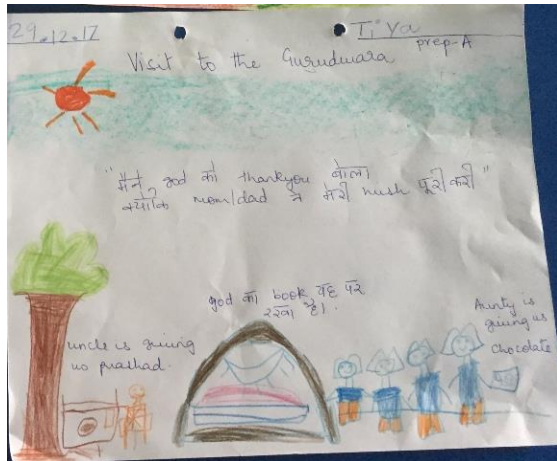 29.12.17
Tiya
prep-A
Visit to the Gurudwara
"मैने god को thankyou बोला
क्योकि mom/dad ने मेरी wish पूरी करी"
god का book बेड पर
रखा है।
Aunty is
giving us
chocolate
uncle is giving
us prashad.